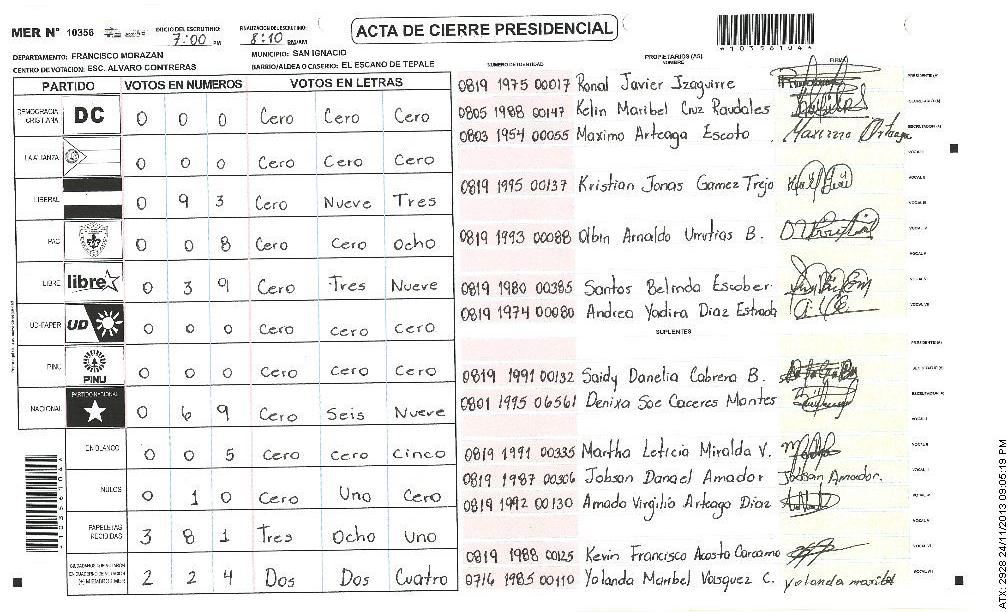 MER N° 10356
INICIO DEL ESCRUTINIO: 7:00 PM
FINALIZACION DEL ESCRUTINIO: 8:10 PM/AM
ACTA DE CIERRE PRESIDENCIAL
DEPARTAMENTO: FRANCISCO MORAZAN
MUNICIPIO: SAN IGNACIO
CENTRO DE VOTACION: ESC. ALVARO CONTRERAS
BARRIO/ALDEA O CASERIO: EL ESCANO DE TEPALE
PARTIDO VOTOS EN NUMEROS VOTOS EN LETRAS
DEMOCRACIA CRISTIANA DC 0 0 0 Cero Cero Cero
LA ALIANZA 0 0 0 Cero Cero Cero
LIBERAL 0 9 3 Cero Nueve Tres
PAC 0 0 8 Cero Cero Ocho
LIBRE libre 0 3 9 Cero Tres Nueve
UD-FAPER UD 0 0 0 Cero Cero Cero
PINU PINU 0 0 0 Cero Cero Cero
NACIONAL PARTIDO NACIONAL 0 6 9 Cero Seis Nueve
EN BLANCO 0 0 5 Cero Cero Cinco
NULOS 0 1 0 Cero Uno Cero
PAPELETAS RECIBIDAS 3 8 1 Tres Ocho Uno
2 2 4 Dos Dos Cuatro
NUMERO DE IDENTIDAD
PROPIETARIOS (AS)
NOMBRE
FIRMA
0819 1975 00017 Ronal Javier Izaguirre
0805 1988 00147 Kelin Maribel Cruz Raudales
0803 1954 00055 Maximo Arteaga Escoto Maximo Arteaga
0819 1995 00137 Kristian Jonas Gamez Trejo
0819 1993 00088 Olbin Arnaldo Urrutias B.
0819 1980 00385 Santos Belinda Escober
0819 1974 00080 Andrea Yadira Diaz Estrada
SUPLENTES
0819 1991 00132 Saidy Danelia Cabrera B.
0801 1995 06561 Denixa Soe Caceres Montes
0819 1991 00335 Martha Leticia Miralda V.
0819 1987 00306 Jobson Danael Amador Jobson Amador.
0819 1992 00130 Amado Virgilio Arteaga Diaz
0819 1988 00125 Kevin Francisco Acosta Carcamo
0716 1985 00110 Yolanda Maribel Vasquez C. yolanda maribel
ATX: 2928 24/11/2013 09:05:19 PM